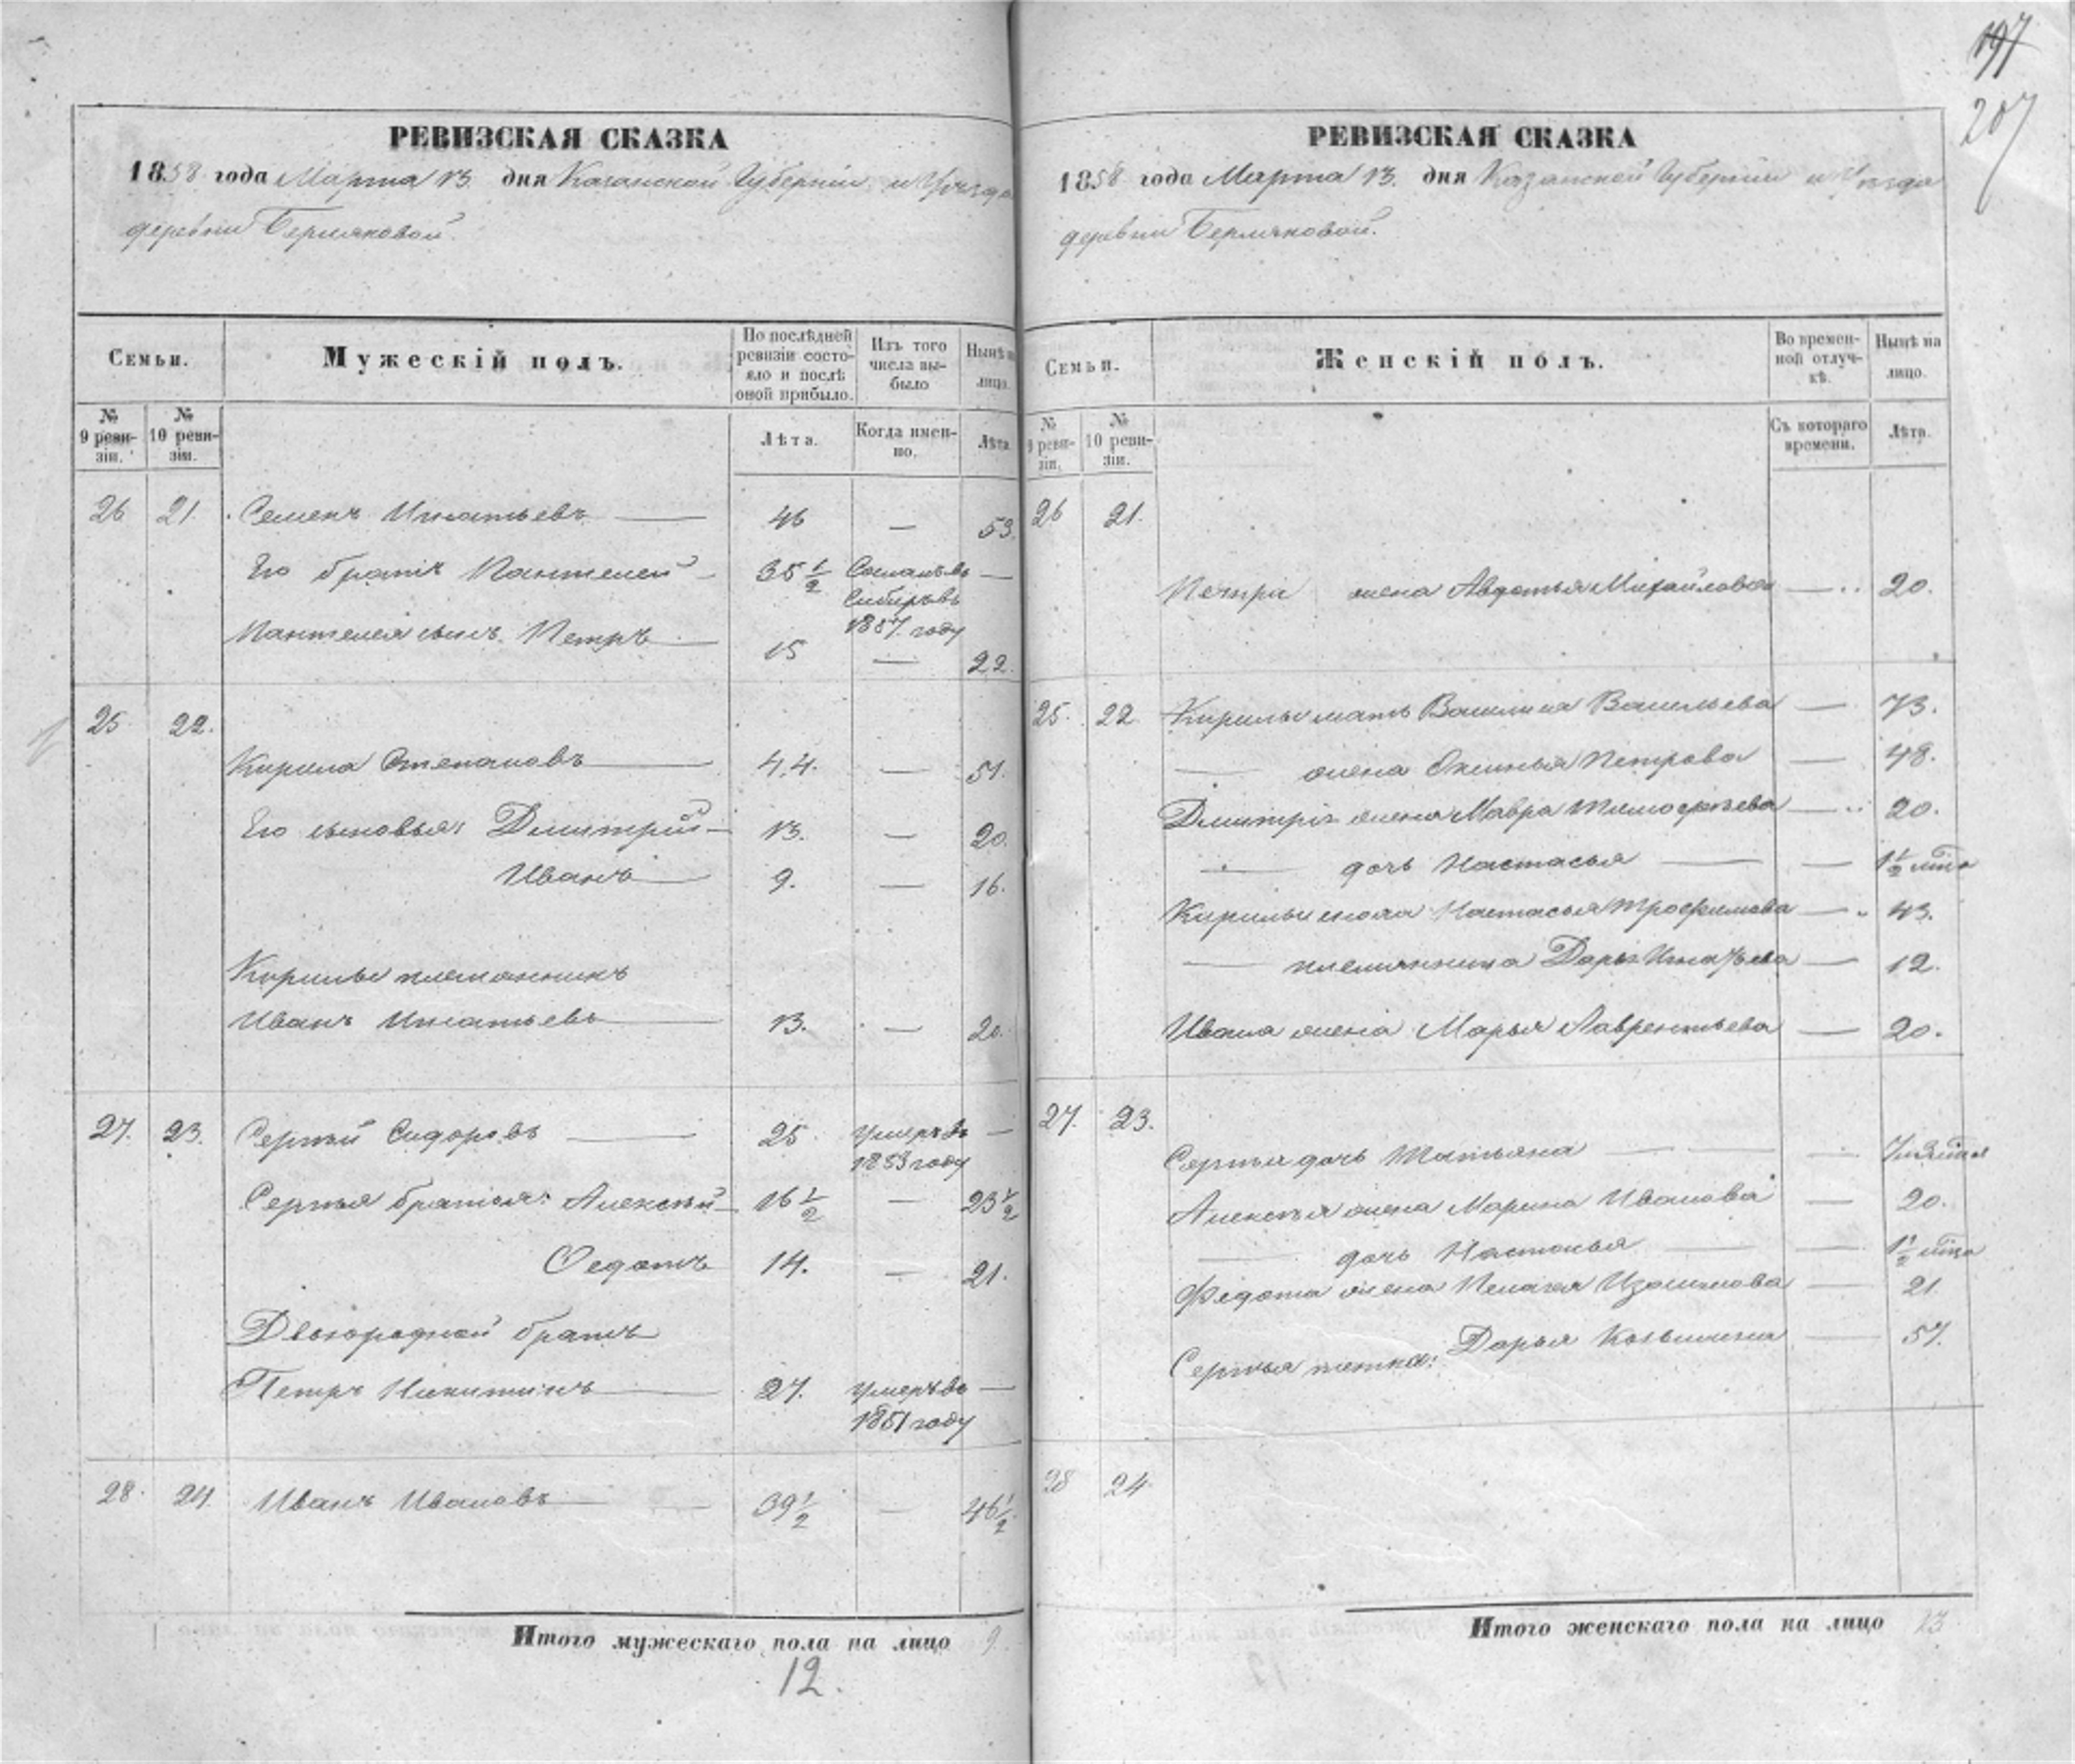 197
207
РЕВИЗСКАЯ СКАЗКА
1858 года Марта 13. дня Казанской Губерніи и Уѣзда
деревни Бермяковой.
Семьи. Мужескій полъ. По послѣдней ревизіи состояло и послѣ оной прибыло. Изъ того числа выбыло Нынѣ на лицо.
№ 9 ревизіи. № 10 ревизіи. Лѣта. Когда именно. Лѣта.
26 21. Семенъ Игнатьевъ — 46 — 53.
Его братъ Пантелей — 35 1/2 Сосланъ въ —
Сибирь въ
1857 году
Пантелея сынъ Петръ — 15 — 22.
25. 22.
Кирила Степановъ — 44. — 51.
Его сыновья: Димитрій — 13. — 20.
Иванъ — 9. — 16.
Кирилы племянникъ
Иванъ Игнатьевъ — 13. — 20.
27. 23. Сергѣй Сидоровъ — 25 Умеръ въ —
1853 году
Сергѣя братья: Алексѣй — 16 1/2 — 23 1/2
Ѳедотъ 14. — 21.
Двоюродной братъ
Петръ Никитинъ — 27. Умеръ въ —
1851 году
28. 24. Иванъ Ивановъ — 39 1/2 — 46 1/2
Итого мужескаго пола на лицо 9.
12.
РЕВИЗСКАЯ СКАЗКА
1858 года Марта 13. дня Казанской Губерніи и Уѣзда
деревни Бермяковой.
Семьи. Женскій полъ. Во временной отлучкѣ. Нынѣ на лицо.
№ 9 ревизіи. № 10 ревизіи. Съ котораго времени. Лѣта.
26 21.
Петра жена Авдотья Михайлова — 20.
25. 22. Кирилы мать Василиса Васильева — 73.
— жена Аксинья Петрова — 48.
Димитрія жена Мавра Тимофѣева — 20.
— дочь Настасья — — 1 1/2 лѣта
Кирилы сноха Настасья Трофимова — 43.
— племянница Дарья Игнатьева — 12.
Ивана жена Марья Лаврентьева — 20.
27. 23.
Сергѣя дочь Татьяна — —
Алексѣя жена Марина Иванова — 20.
— дочь Настасья — — 1 1/2 лѣта
Федота жена Пелагея Изосимова — 21
Сергѣя тетка: Дарья Козьмина — 57.
28 24.
Итого женскаго пола на лицо 13